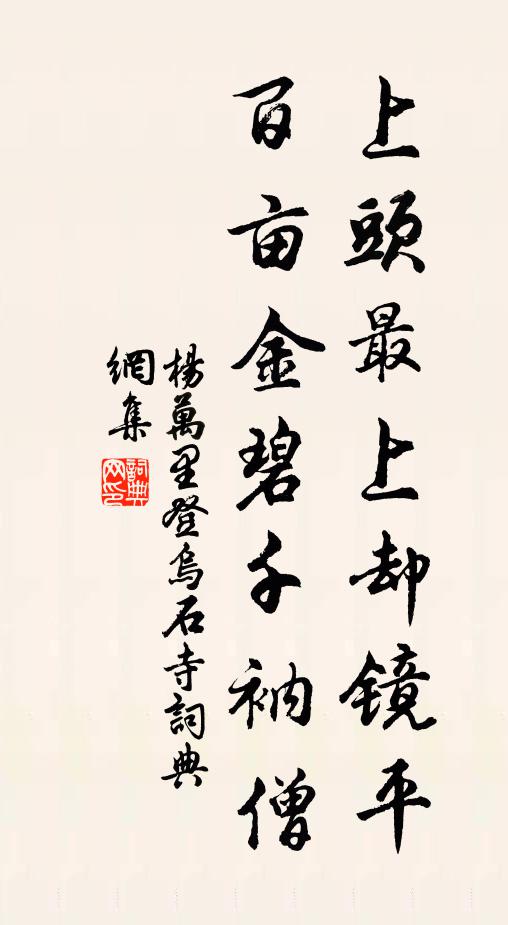 上頭最上却镜平
百亩金碧千衲僧
楊萬里登烏石寺詞典
網集
詞典
网印